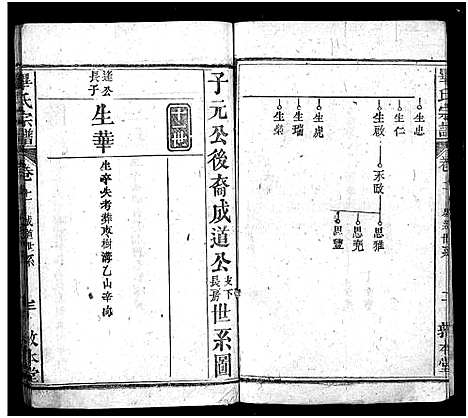 生忠
生仁
生啟
丕啟
思雅
思堯
思豐
生虎
生瑞
生榮
畢氏宗譜
卷
子元公後裔成道公支下長房世系圖
世
長子
生華
生卒失考葬東樹溝乙山辛向
畢氏宗譜
卷十
成道世系
敦本堂